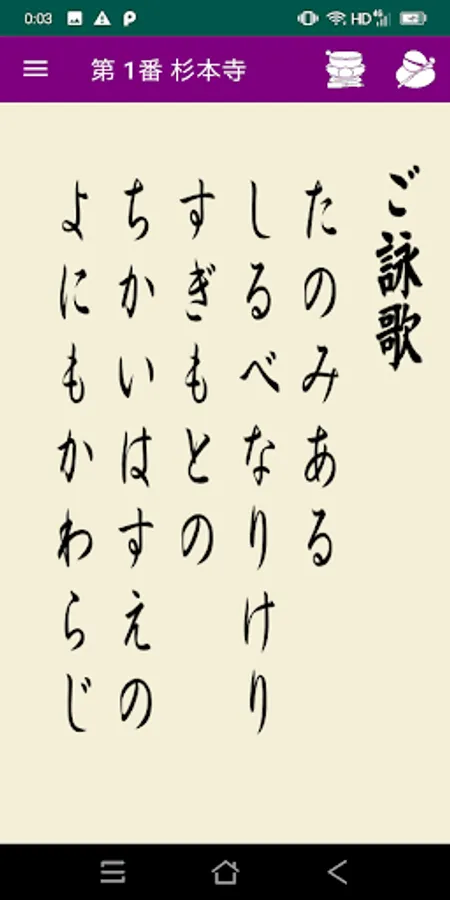 0:03
HD 4G
第 1番 杉本寺
ご詠歌
たのみある
しるべなりけり
すぎもとの
ちかいはすえの
よにもかわらじ